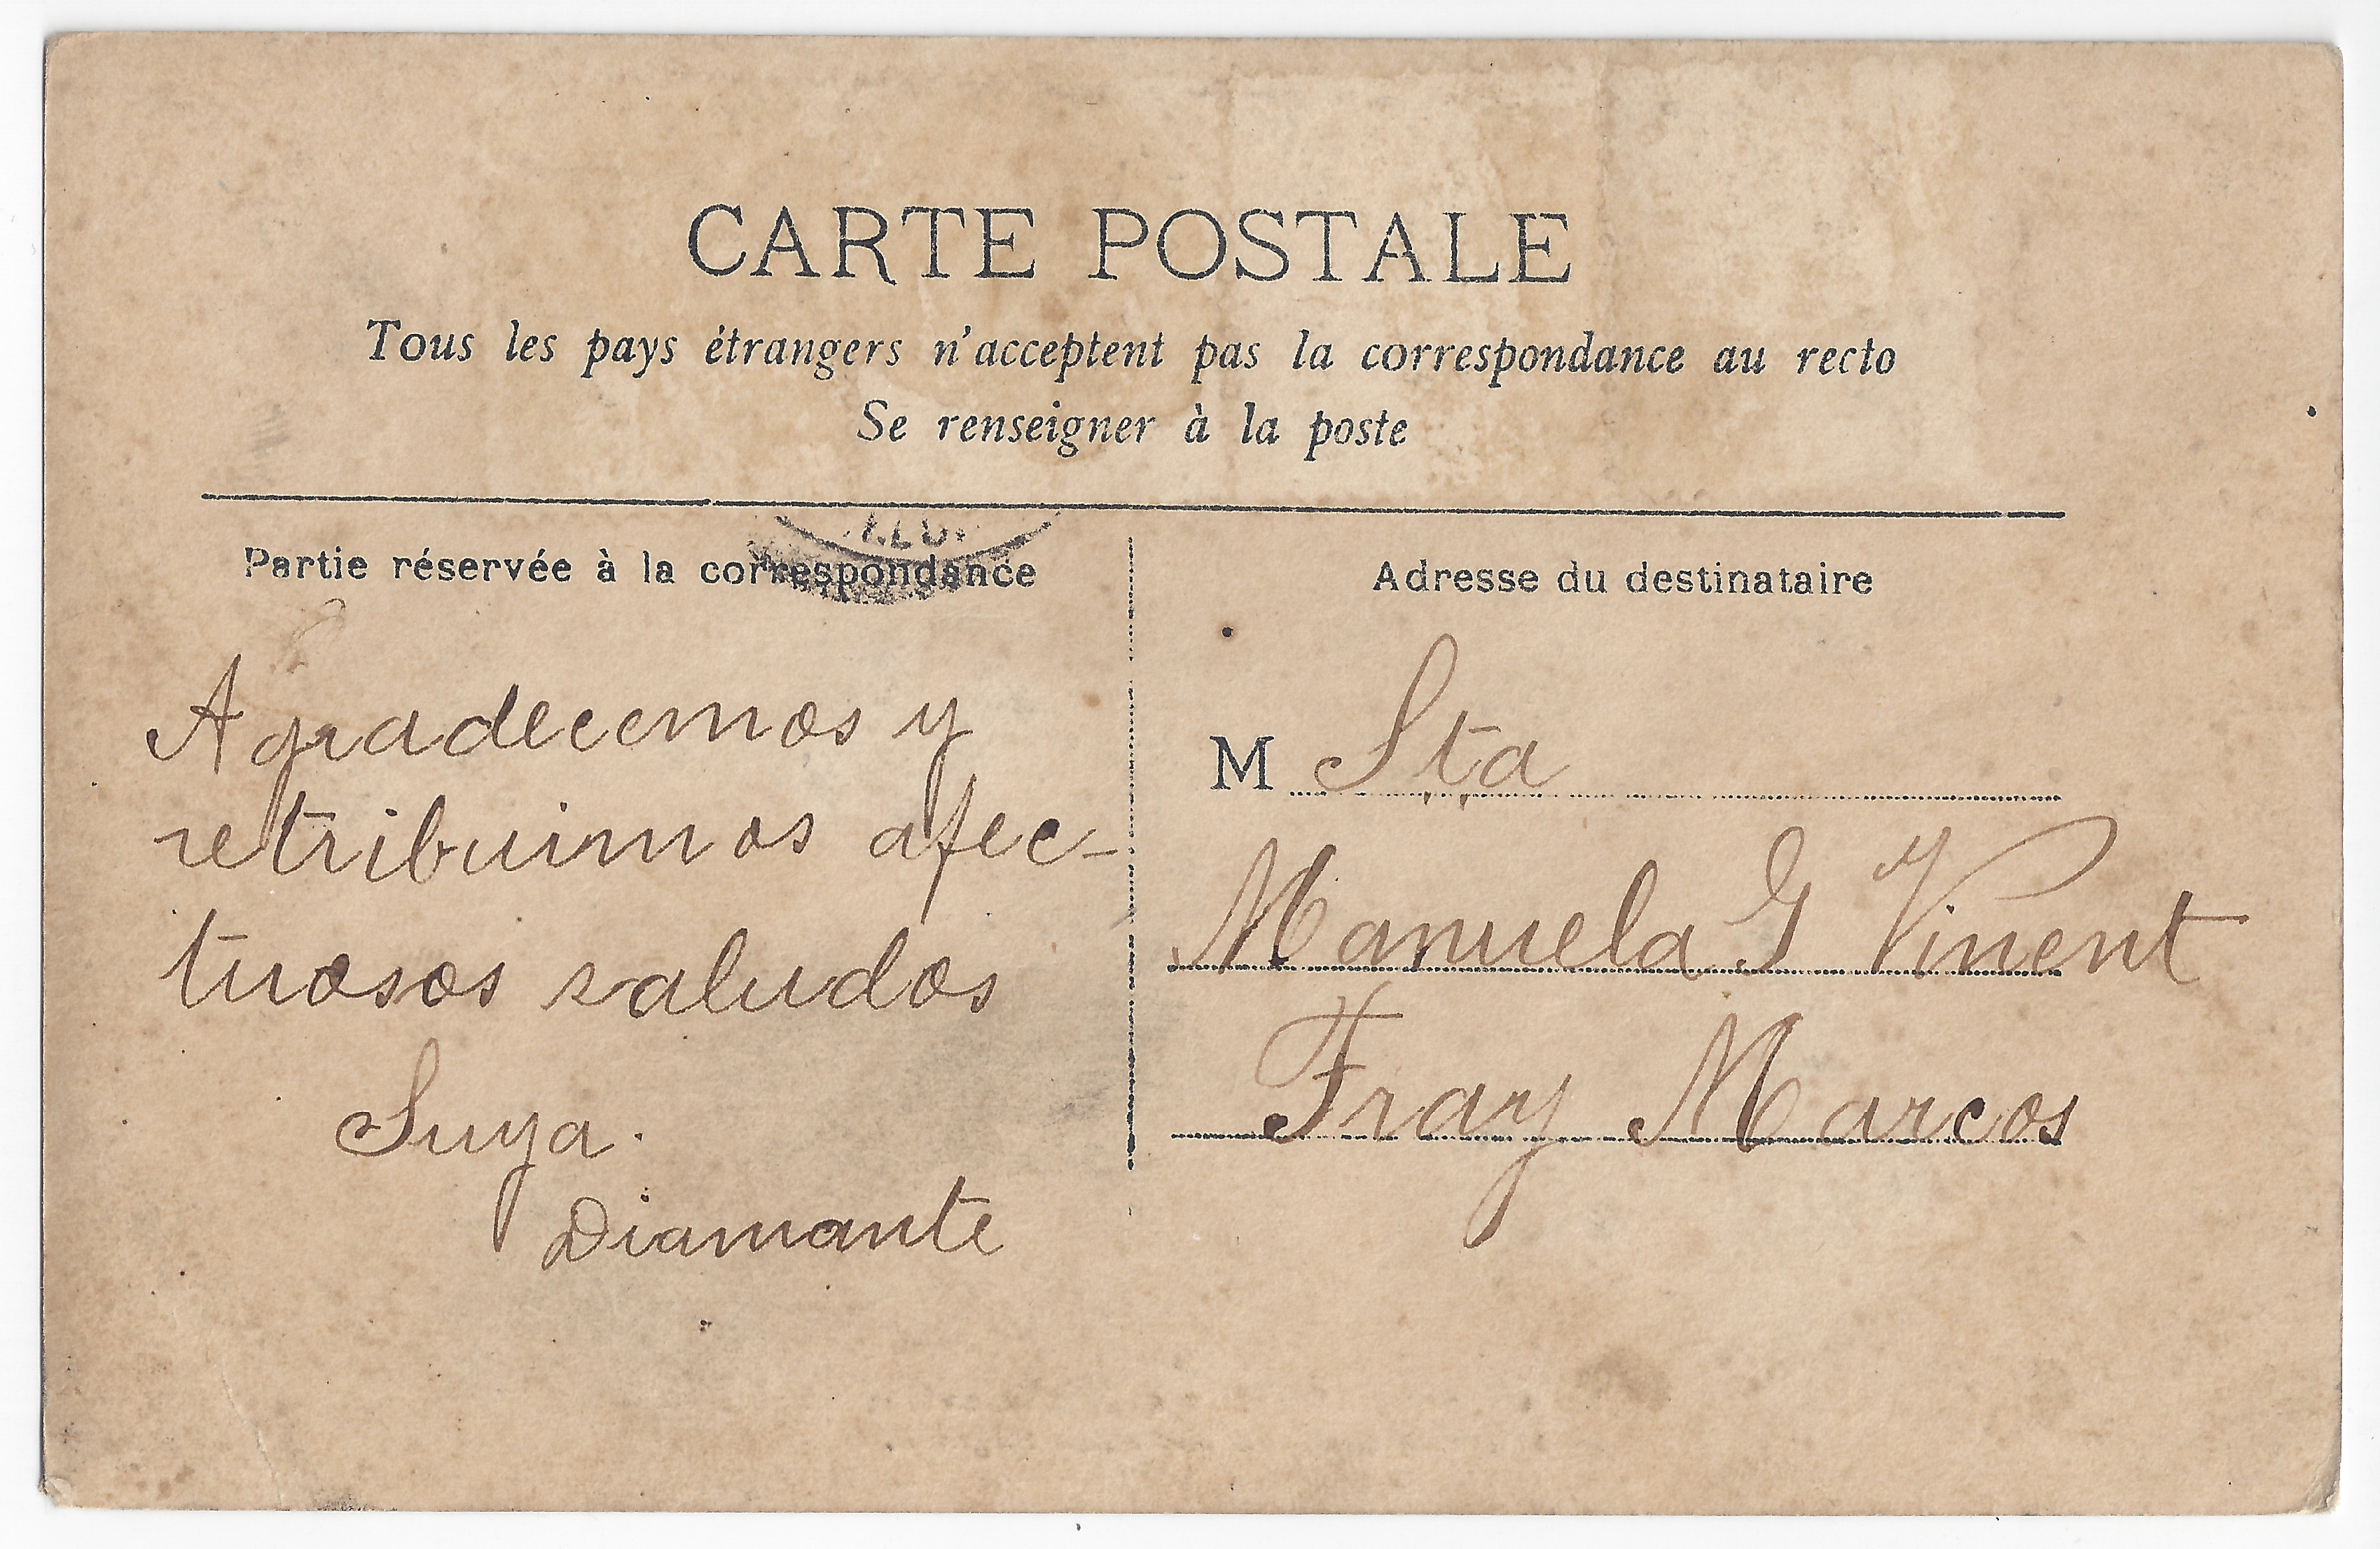 CARTE POSTALE
Tous les pays étrangers n'acceptent pas la correspondance au recto
Se renseigner à la poste
Partie réservée à la correspondance
Agradecemos y
retribuimos afec-
tuosos saludos
Suya.
Diamante
Adresse du destinataire
M Sta
Manuela G Vinent
Fray Marcos